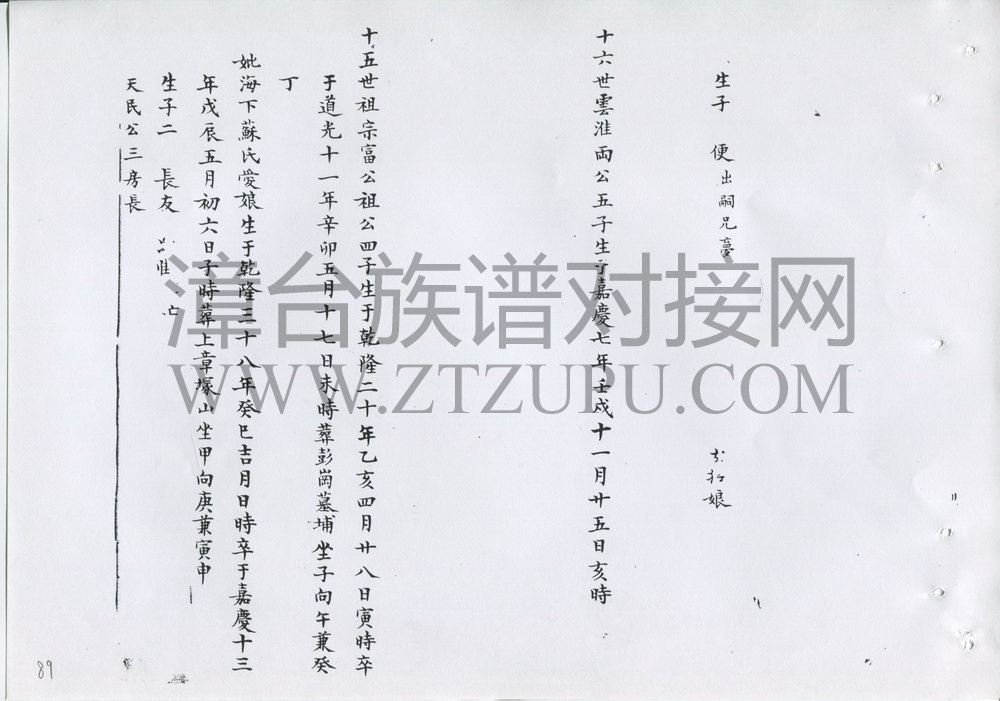 生子 便出嗣兄
娘
十六世雲淮 両公五子生于嘉慶七年壬戌十一月廿五日亥時
十五世祖宗富公祖公四子生于乾隆二十年乙亥四月廿八日寅時卒
于道光十一年辛卯五月十七日未時葬彭崗墓埔坐子向午兼癸
丁
妣海下蘇氏愛娘生于乾隆三十八年癸巳吉月日時卒于嘉慶十三
年戊辰五月初六日子時葬上章塚山坐甲向庚兼寅申
生子二 長友 亡
天民公三房長
漳台族谱对接网
WWW.ZTZUPU.COM
89